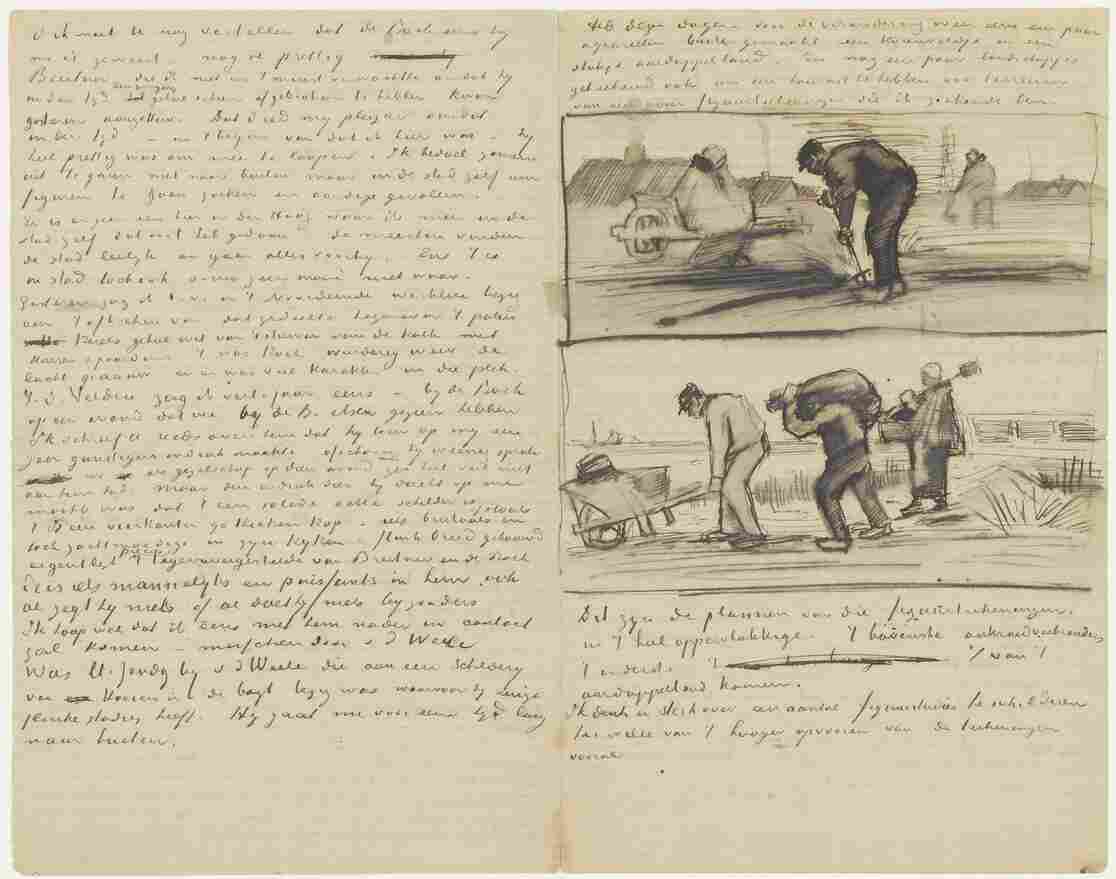 ik moet U nog vertellen dat de Bock eens by
me is geweest. nog al prettig
Breitner, die ik niet in 't minst verwachtte omdat hy
indertyd den omgang geheel scheen afgebroken te hebben kwam
gisteren aanzetten. Dat deed my pleizier omdat
indertyd – in 't begin van dat ik hier was – hy
heel prettig was om mee te loopen. Ik bedoel zamen
uit te gaan niet naar buiten maar in de stad zelf om
figuren te gaan zoeken en aardige gevallen.
Er is er geen een hier in den Haag waar ik mee in de
stad zelf dat ooit heb gedaan de meesten vinden
de stad leelyk en gaan alles voorby. En 't is
in stad toch ook soms zeer mooi niet waar.
Gisteren zag ik b.v. in 't Noordeinde werklui bezig
aan 't afbreken van dat gedeelte tegenover 't paleis
kerels geheel wit van de kalk met
karren & paarden. 't was koel winderig weer de
lucht graauw en er was veel karakter in die plek.
v.d. Velden zag ik verl. jaar eens – by de Bock
op een avond dat we by de B. etsen gezien hebben
ik schreef U reeds over hem dat hy toen op my een
zeer gunstigen indruk maakte ofschoon hy weinig sprak
en gezelschap op dien avond
Maar de indruk dien hy direkt op me
maakte was dat 't een solide echte schilder is
't Is een vierkante gothieken kop – iets brutaals en
toch zachtmoedigs in zyn kyken. Sterk breed gebouwd
eigentlyk precies 't tegenovergestelde van Breitner en de Bock
Er is iets mannelyks en puissants in hem, ook
al zegt hy niets of al doet hy niets byzonders
Ik hoop wel dat ik eens met hem nader in contact
zal komen – misschien door v.d. Weele
Was ll. Zondag by v.d. Weele die aan een Schildery
van Koeien in de bogt bezig was waarvoor hy eenige
flinke studies heeft. Hy gaat nu voor een tyd lang
naar buiten.
Heb dezer dagen voor de verandering weer eens een paar
aquarellen buiten gemaakt een korenveldje en een
stukje aardappelland. En nog een paar landschapjes
geteekend ook om een houvast te hebben voor terreinen
van een paar figuurteekeningen die ik zoekende ben.
Dit zyn de plannen van die figuurteekeningen.
in 't heel oppervlakkige. 't bovenste onkruidverbranders
't onderste 't van 't
aardappelland komen.
Ik denk er sterk over een aantal figuurstudies te schilderen
ter wille van 't hooger opvoeren van de teekeningen
vooral